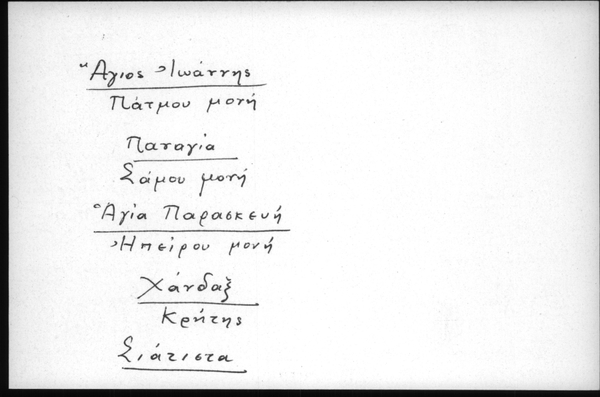 Ἅγιος Ἰωάννης
Πάτμου μονή
Παναγία
Σάμου μονή
Ἁγία Παρασκευή
Ἠπείρου μονή
Χάνδαξ
Κρήτης
Σιάτιστα